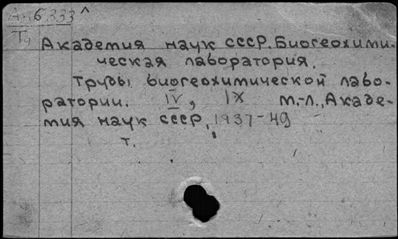 6333^
T4
Академия наук СССР. Биогеохими-
ческая лаборатория.
Труды биогеохимической лабо-
ратории. IV, IX М.-Л., Акаде-
мия наук СССР, 1937-49
т.